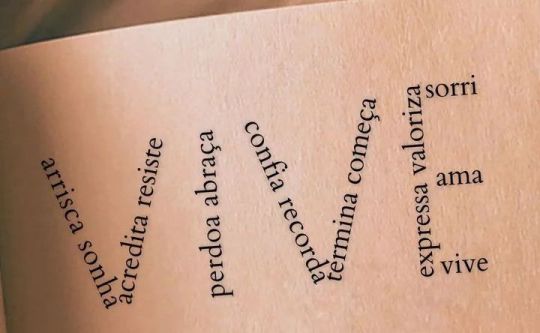 arrisca sonha
acredita resiste
perdoa abraça
confia recorda
termina começa
expressa valoriza
sorri
ama
vive